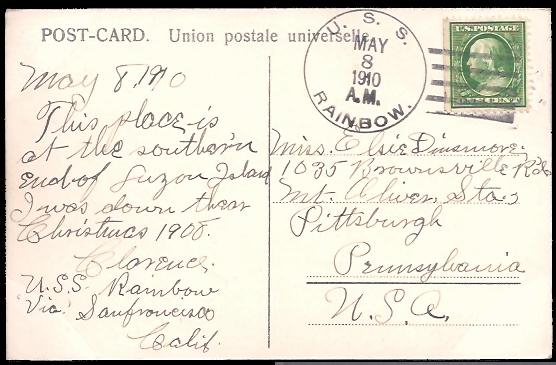 POST-CARD. Union postale universelle
U. S. S.
MAY
8
1910
A.M.
RAINBOW.
U.S. POSTAGE
ONE CENT
May 8, 1910
This place is
at the southern
end of Luzon Island
I was down there
Christmas 1908.
Clarence.
U.S.S. Rainbow
Via. Sanfrancisco
Calif.
Miss. Elsie Dinsmore.
1035 Brownsville Rd.
Mt. Oliver Sta.
Pittsburgh
Pennsylvania
U.S.A.